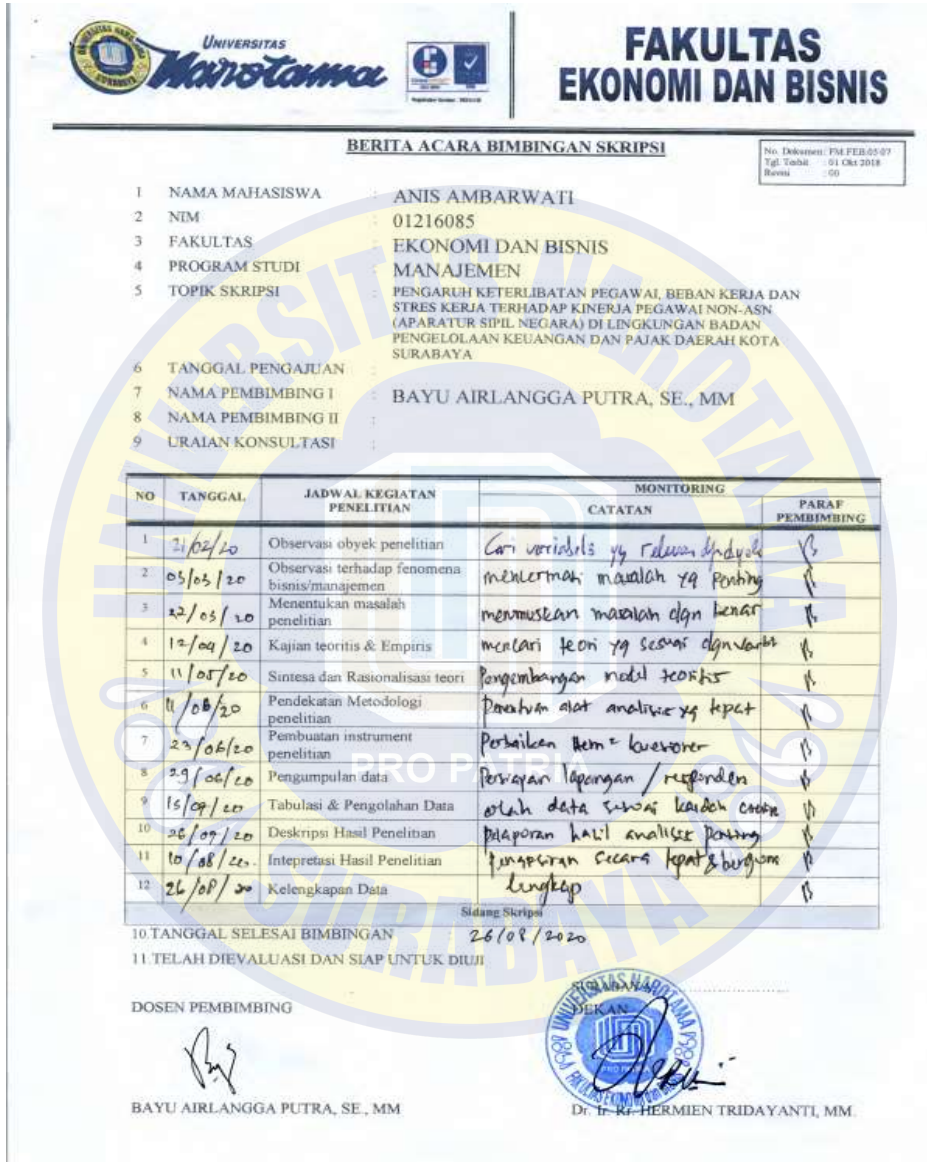 UNIVERSITAS
Narotama
FAKULTAS
EKONOMI DAN BISNIS
BERITA ACARA BIMBINGAN SKRIPSI
No. Dokumen: FM.FEB.05-07
Tgl. Terbit : 01 Okt 2018
Revisi : 00
1 NAMA MAHASISWA : ANIS AMBARWATI
2 NIM : 01216085
3 FAKULTAS : EKONOMI DAN BISNIS
4 PROGRAM STUDI : MANAJEMEN
5 TOPIK SKRIPSI : PENGARUH KETERLIBATAN PEGAWAI, BEBAN KERJA DAN
STRES KERJA TERHADAP KINERJA PEGAWAI NON-ASN
(APARATUR SIPIL NEGARA) DI LINGKUNGAN BADAN
PENGELOLAAN KEUANGAN DAN PAJAK DAERAH KOTA
SURABAYA
6 TANGGAL PENGAJUAN :
7 NAMA PEMBIMBING I : BAYU AIRLANGGA PUTRA, SE., MM
8 NAMA PEMBIMBING II :
9 URAIAN KONSULTASI :
NO TANGGAL JADWAL KEGIATAN PENELITIAN MONITORING
CATATAN PARAF PEMBIMBING
1 21/02/20 Observasi obyek penelitian Cari yg relevan
2 05/03/20 Observasi terhadap fenomena bisnis/manajemen mencermati masalah yg penting
3 22/03/20 Menentukan masalah penelitian merumuskan masalah dgn benar
4 12/04/20 Kajian teoritis & Empiris mencari teori yg sesuai dgn
5 11/05/20 Sintesa dan Rasionalisasi teori Pengembangan model teoritis
6 11/06/20 Pendekatan Metodologi penelitian Penentuan alat analisis yg tepat
7 23/06/20 Pembuatan instrument penelitian Perbaikan item² kuesioner
8 29/06/20 Pengumpulan data Persiapan lapangan / responden
9 15/07/20 Tabulasi & Pengolahan Data olah data sesuai kaidah
10 26/07/20 Deskripsi Hasil Penelitian pelaporan hasil analisis penting
11 10/08/20. Intepretasi Hasil Penelitian secara tepat &
12 26/08/20 Kelengkapan Data Lengkap
Sidang Skripsi
10.TANGGAL SELESAI BIMBINGAN 26/08/2020
11.TELAH DIEVALUASI DAN SIAP UNTUK DIUJI
SURABAYA,
DOSEN PEMBIMBING
DEKAN
BAYU AIRLANGGA PUTRA, SE., MM
Dr. Ir. Rr. HERMIEN TRIDAYANTI, MM.
UNIVERSITAS NAROTAMA
PRO PATRIA
SURABAYA